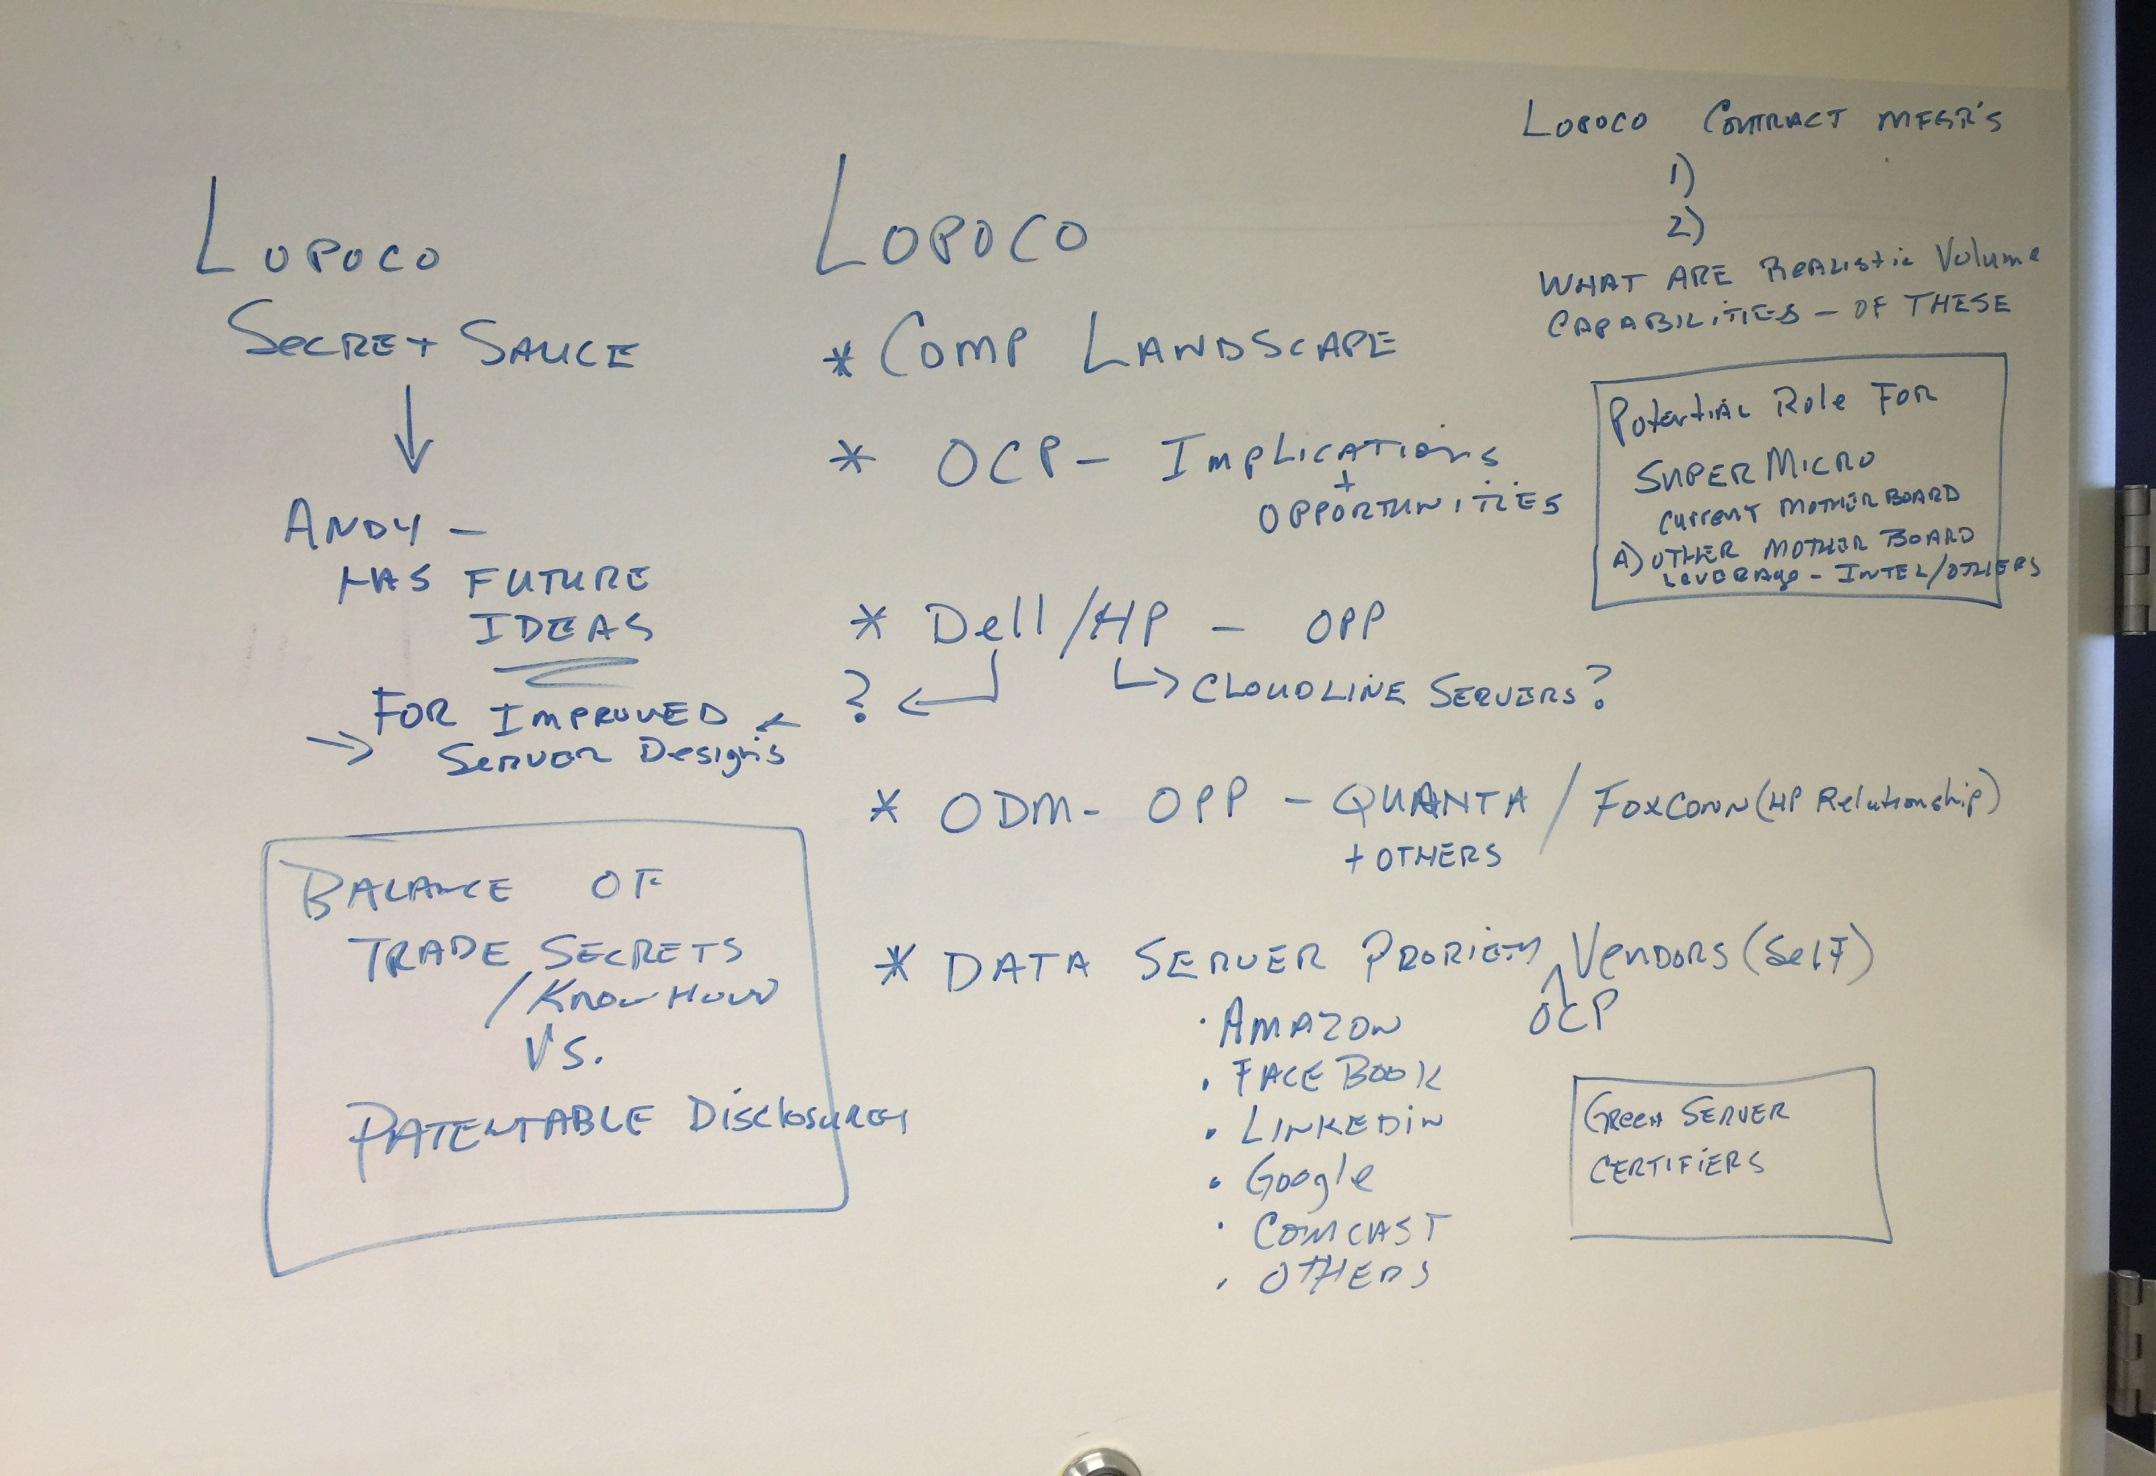 LOPOCO
SECRET SAUCE
↓
ANDY –
HAS FUTURE
IDEAS
→ FOR IMPROVED ←
SERVER Designs
BALANCE OF
TRADE SECRETS
/KNOW HOW
VS.
PATENTABLE DISCLOSURES
LOPOCO
* COMP LANDSCAPE
* OCP – IMPLICATIONS
+
OPPORTUNITIES
* Dell/HP – OPP
? ← ↳ CLOUDLINE SERVERS?
* ODM – OPP – QUANTA / FOXCONN (HP Relationship)
+ OTHERS
* DATA SERVER VENDORS (Self)
^ OCP
· AMAZON
· FACEBOOK
· LINKEDIN
· Google
· COMCAST
· OTHERS
LOPOCO CONTRACT MFGR'S
1)
2)
WHAT ARE Realistic Volume
CAPABILITIES – OF THESE
Potential Role FOR
SUPERMICRO
CURRENT MOTHERBOARD
A) OTHER MOTHER BOARD
LEVERAGE – INTEL/OTHERS
GREEN SERVER
CERTIFIERS